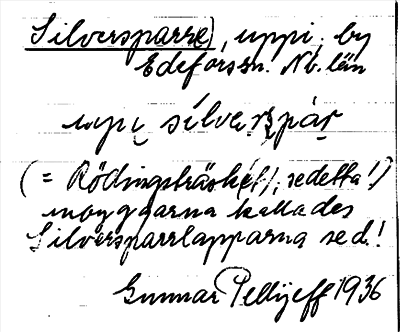 Silversparre), uppi, by
Edefors sn. Nb. län
upi silverspar
(= Rödingsträsk(et), se detta!)
inbyggarna kallades
Silversparrlapparna se d.!
Gunnar Pellijeff 1936